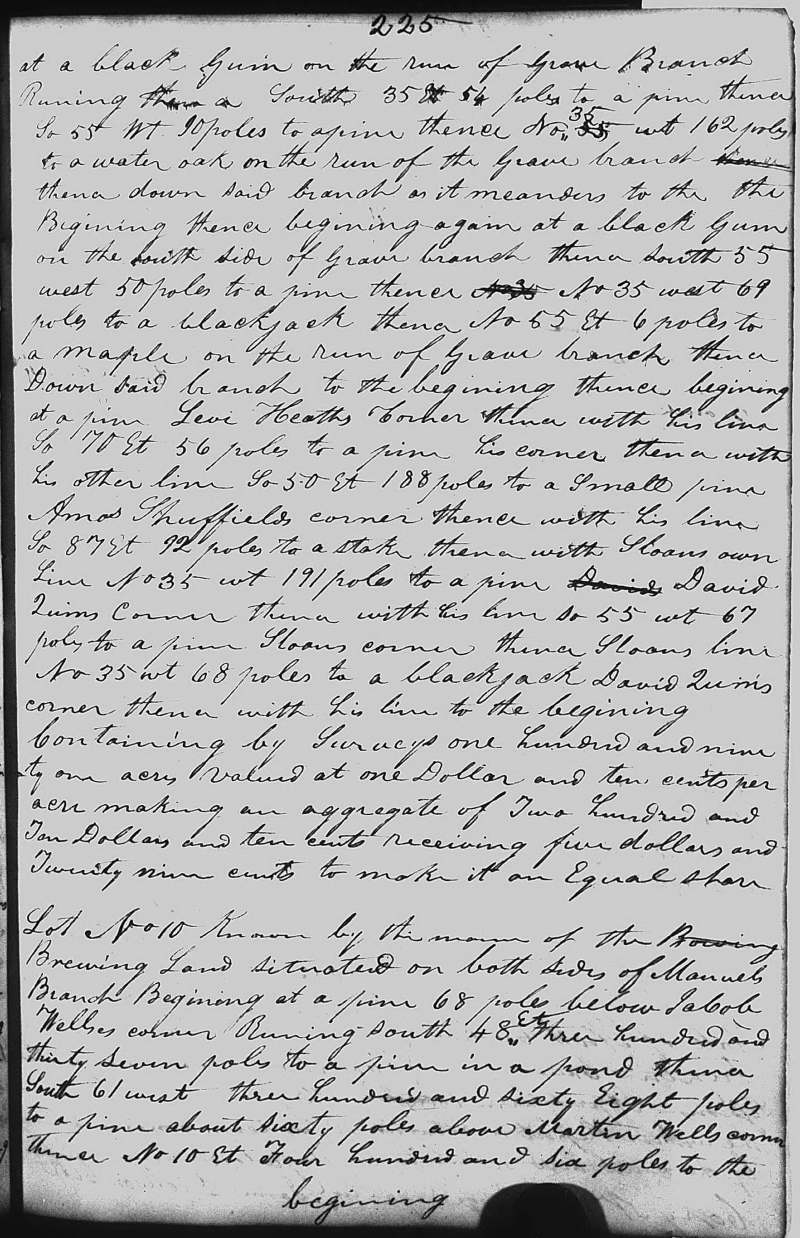 225
at a black Gum on the run of Grave Branch
Runing South 35 Et 54 poles to a pine thence
So 55 Wt. 90 poles to a pine thence No 35 wt 162 poles
to a water oak on the run of the Grave branch thence
thence down said branch as it meanders to the the
Begining thence begining again at a black Gum
on the south side of Grave branch thence south 55
west 50 poles to a pine thence No 35 west 69
poles to a blackjack thence No 55 Et 6 poles to
a maple on the run of Grave branch thence
Down said branch to the begining thence begining
at a pine Levi Heaths Corner thence with his line
So 70 Et 56 poles to a pine his corner thence with
his other line So 50 Et 188 poles to a Small pine
Amos Shuffields corner thence with his line
So 87 Et 92 poles to a stake thence with Sloans own
Line No 35 wt 191 poles to a pine Davids David
Quins Corner thence with his line so 55 wt 67
poles to a pine Sloans corner thence Sloans line
No 35 wt 68 poles to a blackjack David Quins
corner thence with his line to the begining
Containing by Surveys one hundred and nine
ty one acres valued at one Dollar and ten cents per
acre making an aggregate of Two hundred and
Ten Dollars and ten cents receiving five dollars and
Twenty nine cents to make it an Equal share
Lot No 10 Known by the name of the Browing
Brewing Land situated on both sides of Manuels
Branch Begining at a pine 68 poles below Jacob
Wellses corner Runing south 48 Et three hundred and
thirty seven poles to a pine in a pond thence
South 61 west three hundred and sixty Eight poles
to a pine about sixty poles above Martin Wells corner
thence No 10 Et Four hundred and six poles to the
begining